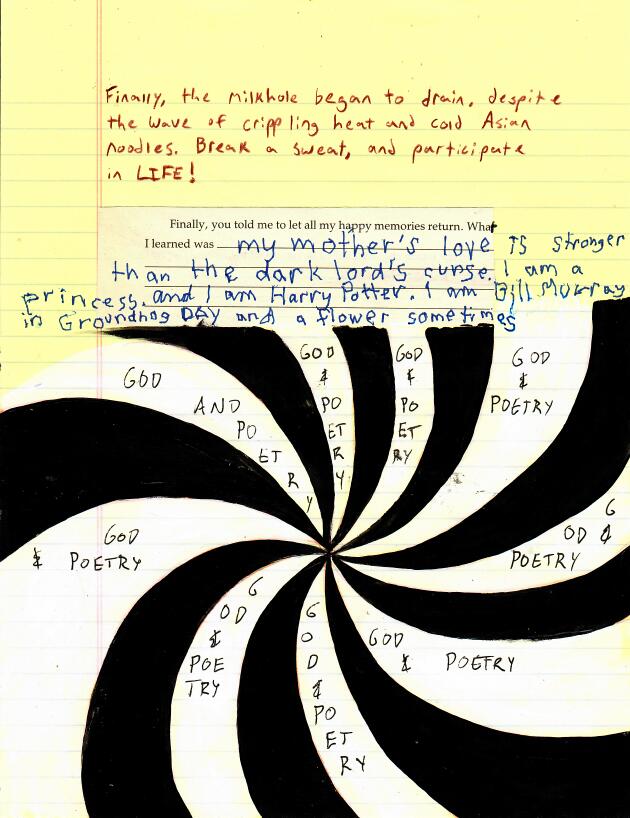 Finally, the milkhole began to drain, despite
the wave of crippling heat and cold Asian
noodles. Break a sweat, and participate
in LIFE!
Finally, you told me to let all my happy memories return. What
I learned was my mother's love is stronger
than the dark lord's curse. I am a
princess. and I am Harry Potter. I am Bill Murray
in Groundhog DAY and a flower sometimes
GOD
AND
PO
ET
R
Y
GOD
&
PO
ET
R
Y
GOD
&
PO
ET
RY
GOD
&
POETRY
G
OD &
POETRY
GOD
& POETRY
G
OD
&
POE
TRY
G
O
D
&
PO
ET
RY
GOD
& POETRY